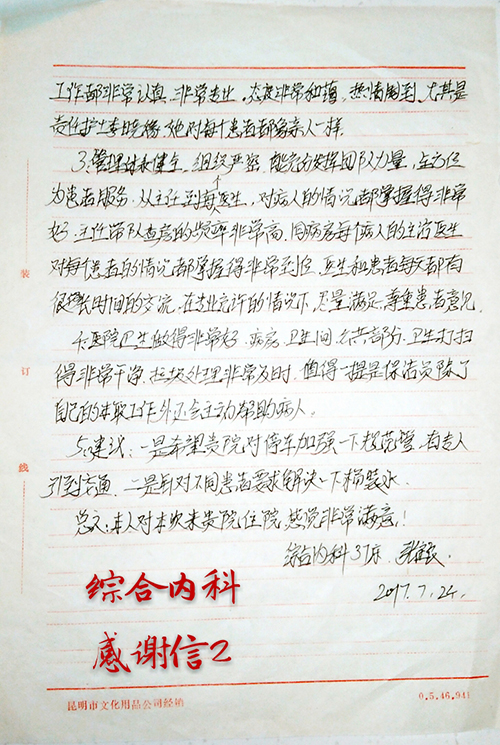 工作都非常认真、非常专业，态度非常和蔼，热情周到，尤其是
责任护士李晓 ，她对每个患者都象亲人一样。
3、管理体系健全，组织严密，能充分发挥团队力量，全方位
为患者服务，从主任到每个医生，对病人的情况都掌握得非常
好，主任带队查房的频率非常高，同病房每个病人的主治医生
对每个患者的情况都掌握得非常到位，医生和患者每天都有
很长时间的交流，在专业允许的情况下，尽量满足、尊重患者意见。
4、医院卫生做得非常好，病房、卫生间、公共部分，卫生打扫
得非常干净，垃圾处理非常及时，值得一提是保洁员除了
自己的本职工作外还会主动帮助病人。
5、建议：一是希望贵院对停车加强一下规范管，有专人
引到交通，二是针对不同患者要求解决一下桶装水。
总之：本人对本次来贵院住院，感觉非常满意！
综合内科37床
2017.7.24.
综合内科
感谢信2
装
订
线
昆明市文化用品公司经销
0.5.46.941